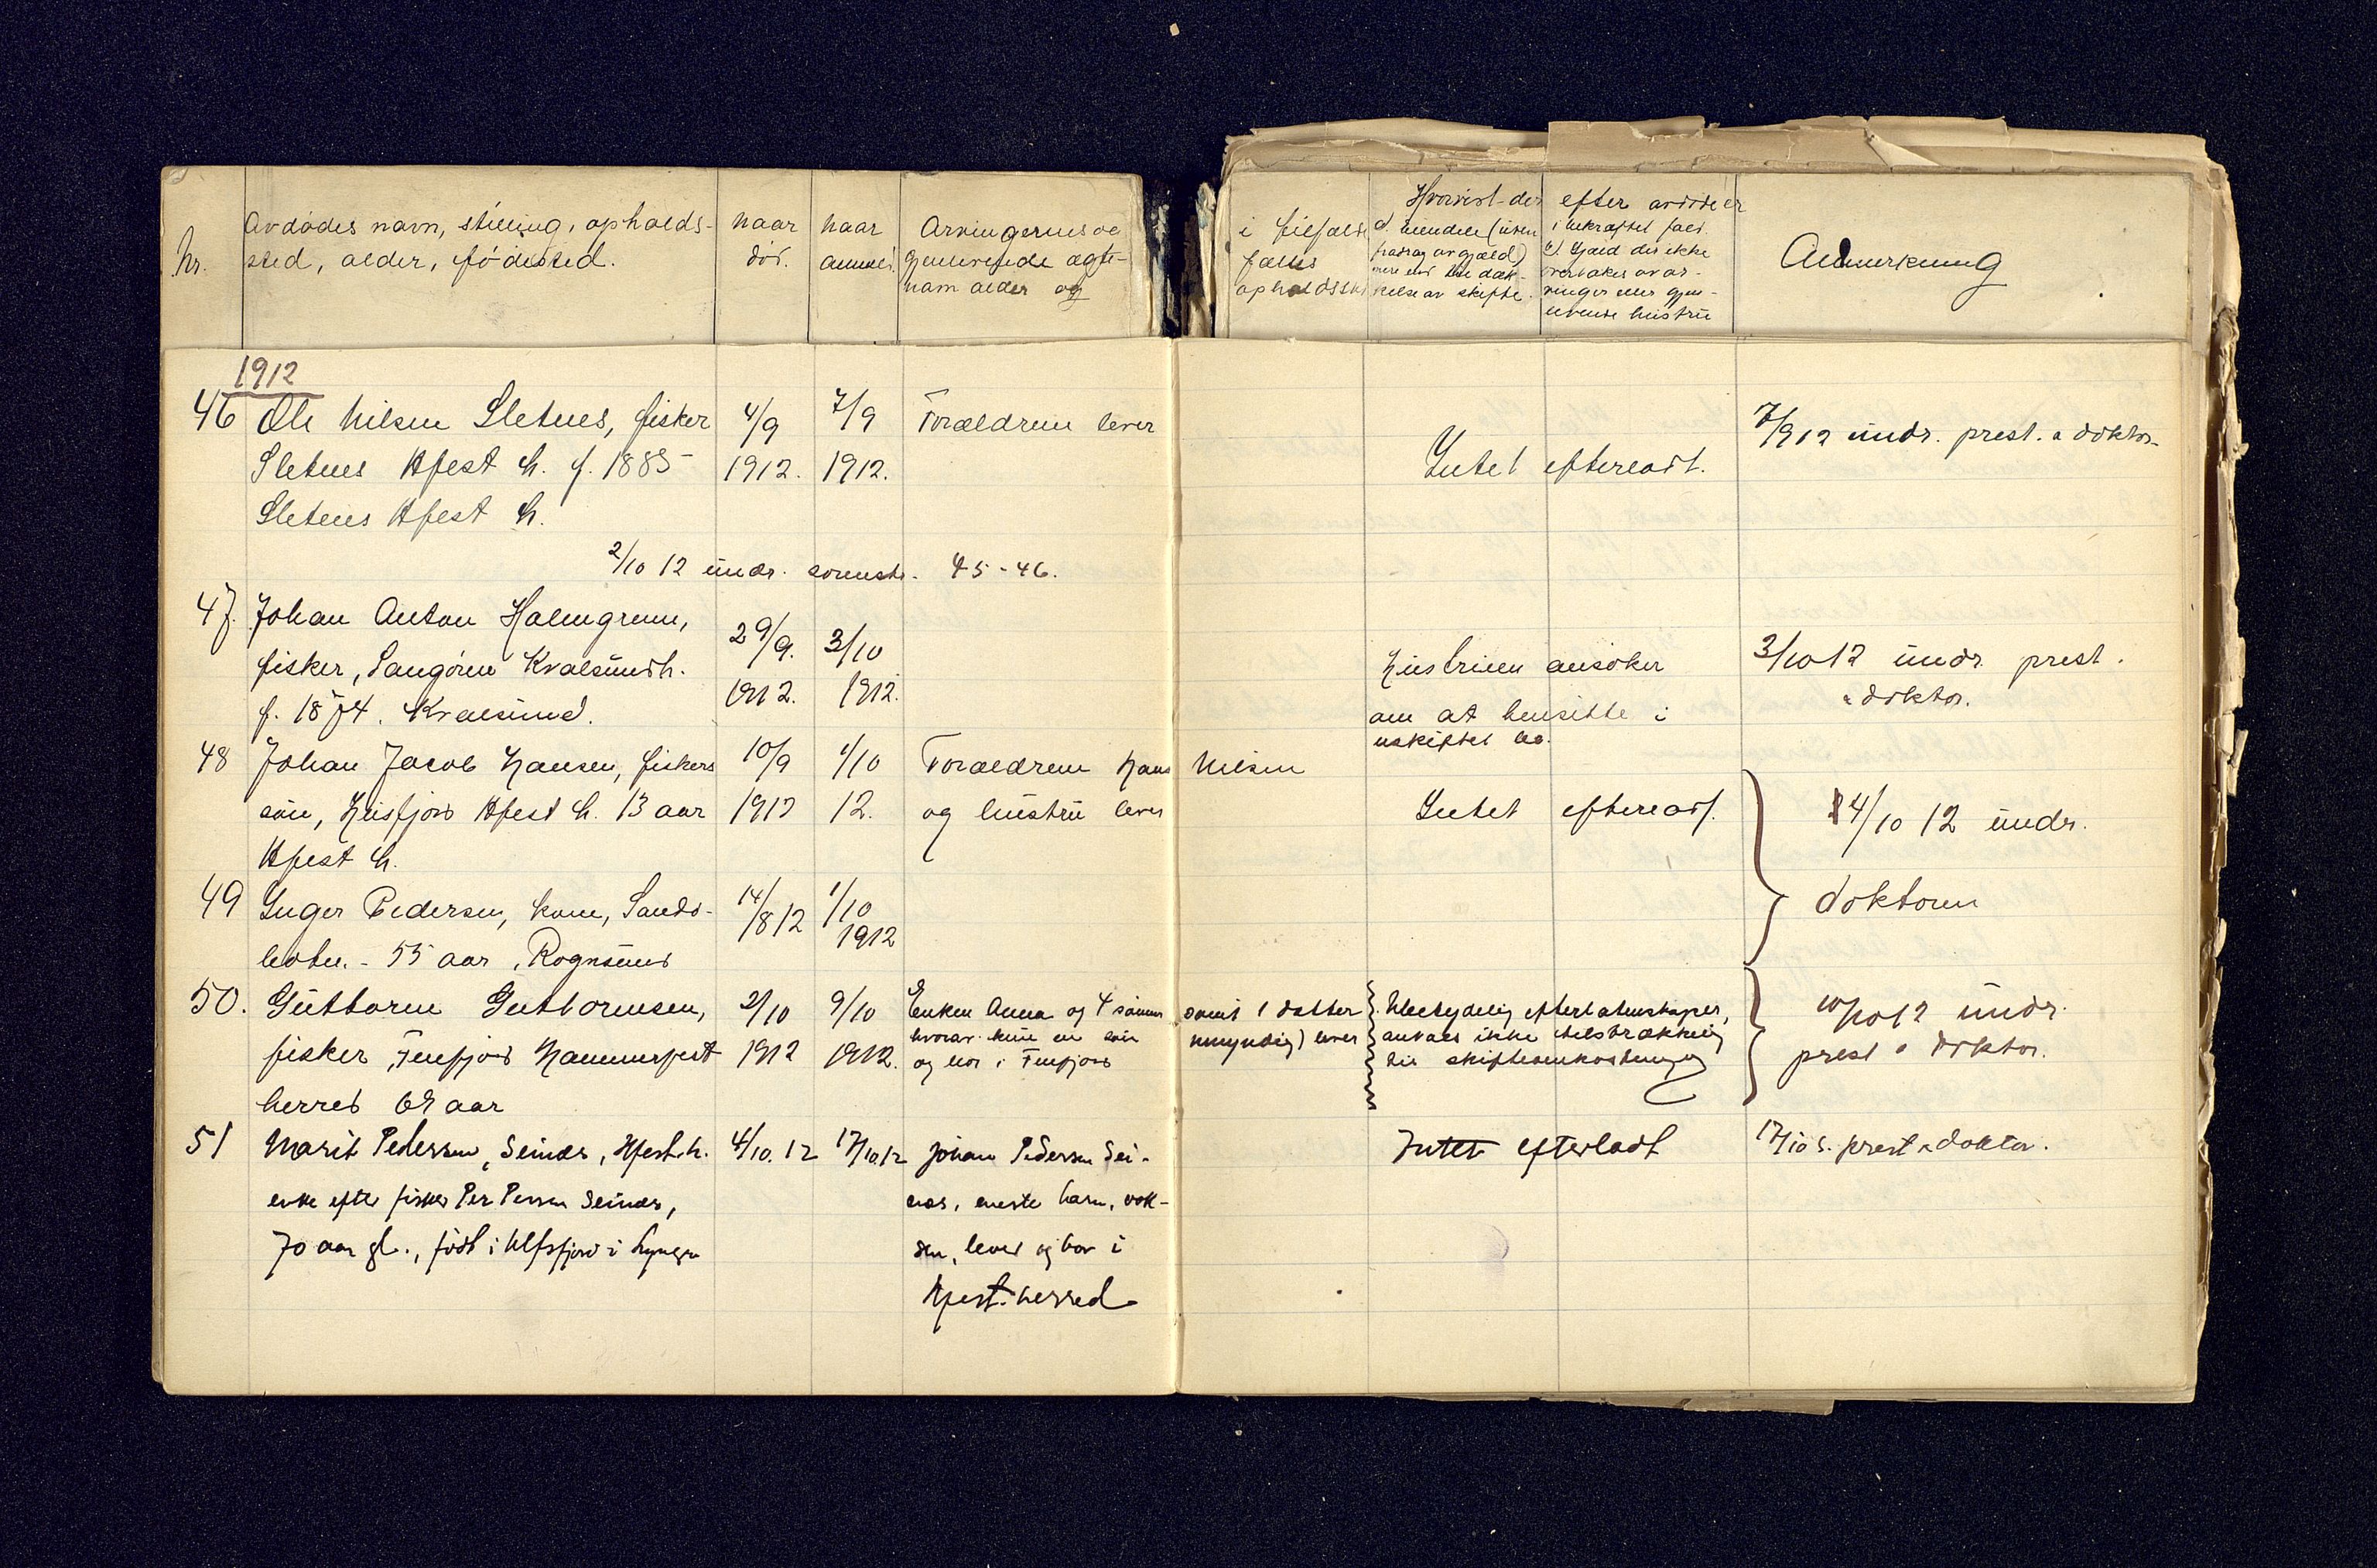 Nr.
Avdødes navn, stilling, opholds-
sted, alder, fødested.
Naar
død.
Naar
anmel.
Arvingernes og
gjenlevende ægte-
navn alder og
i tilfælde
fælles
opholdsst
Hvorvidt der efter avdøde er
a) eiendele (uten
fradrag av gjæld)
mere end til dæk-
kelse av skifte.
i bekræftet fald
b) Gjæld der ikke
overtakes av ar-
vinger eller gjen-
levende hustru
Anmerkning
1912
46 Ole Nilsen Sletnes, fisker
Sletnes Hfest h. f. 1885
Sletnes Hfest h.
4/9
1912.
7/9
1912.
Forældrene lever
Intet efterladt.
7/9 12 undr. prest. & doktor
2/10 12 undr. sorenskr. 45-46.
47. Johan Anton Halmgrenn,
fisker, Langören Kvalsundh.
f. 1874. Kvalsund.
29/9.
1912.
3/10
1912.
Hustruen ansöker
om at hensitte i
uskiftet bo.
3/10 12 undr prest.
& doktor.
48 Johan Jacob Hansen, fiskers
sön, Husfjord Hfest h. 13 aar
Hfest h.
10/9
1912
1/10
12.
Forældrene Hans Nilsen
og hustru lever
Intet efterladt.
4/10 12 undr.
doktoren
49 Inger Pedersen, kone, Sands-
botn. - 55 aar, Rognsund
14/8 12
1/10
1912
50. Guttorm Guttormsen,
fisker, Fenfjord Hammerfest
herred 69 aar
2/10
1912
9/10
1912.
Enken Anna og 4 sönner samt 1 datter
hvorav kun en sön umyndig) lever
og bor i Fenfjord
Ubetydelig efterlatenskaper,
antaes ikke tilstrækkelig
til skifteomkostninger
10/10 12 undr.
prest & doktor.
51 Marit Pedersen, Seinæs, Hfest.h.
enke efter fisker Per Persen Seinæs,
70 aar gl., födt i Ulfsfjord i Lyngen
4/10. 12
17/10 12
Johan Pedersen Sei-
næs, eneste barn, vok-
sen, lever og bor i
Hfest. herred
Intet efterladt
17/10 s. prest & doktor.